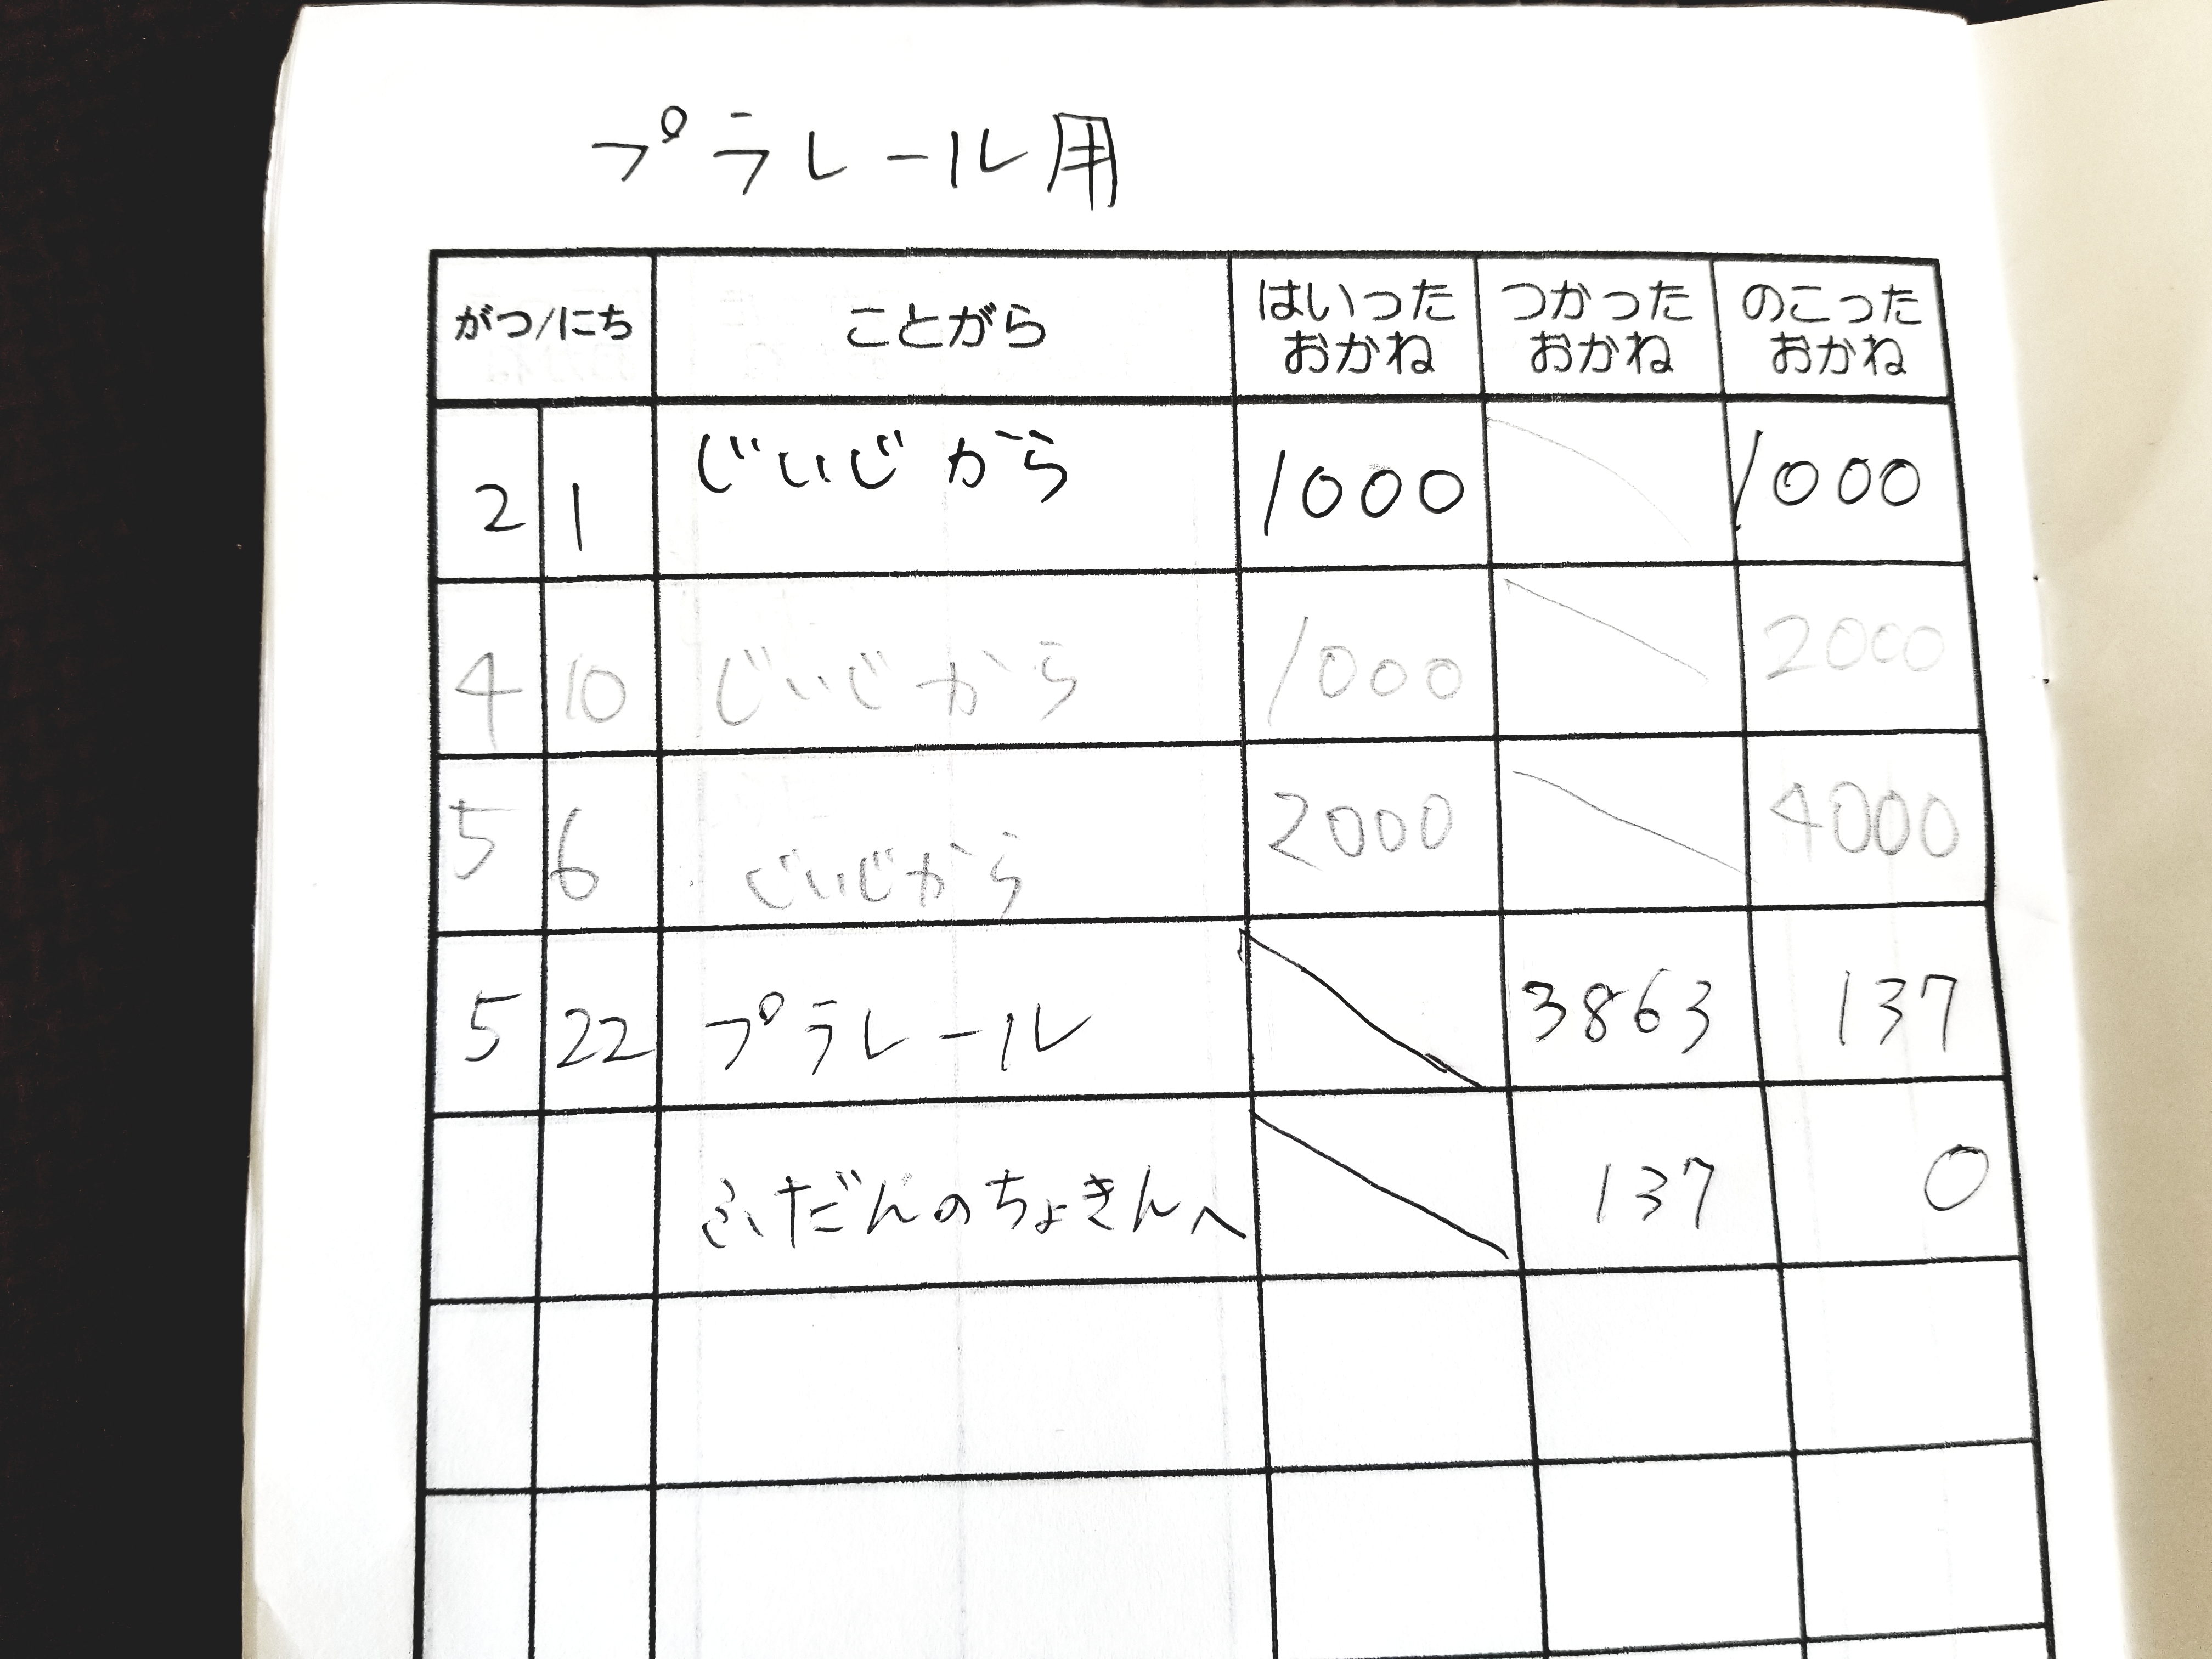 プラレール用
がつ/にち ことがら はいったおかね つかったおかね のこったおかね
2 1 じいじから 1000 1000
4 10 じいじから 1000 2000
5 6 じいじから 2000 4000
5 22 プラレール 3863 137
ふだんのちょきんへ 137 0